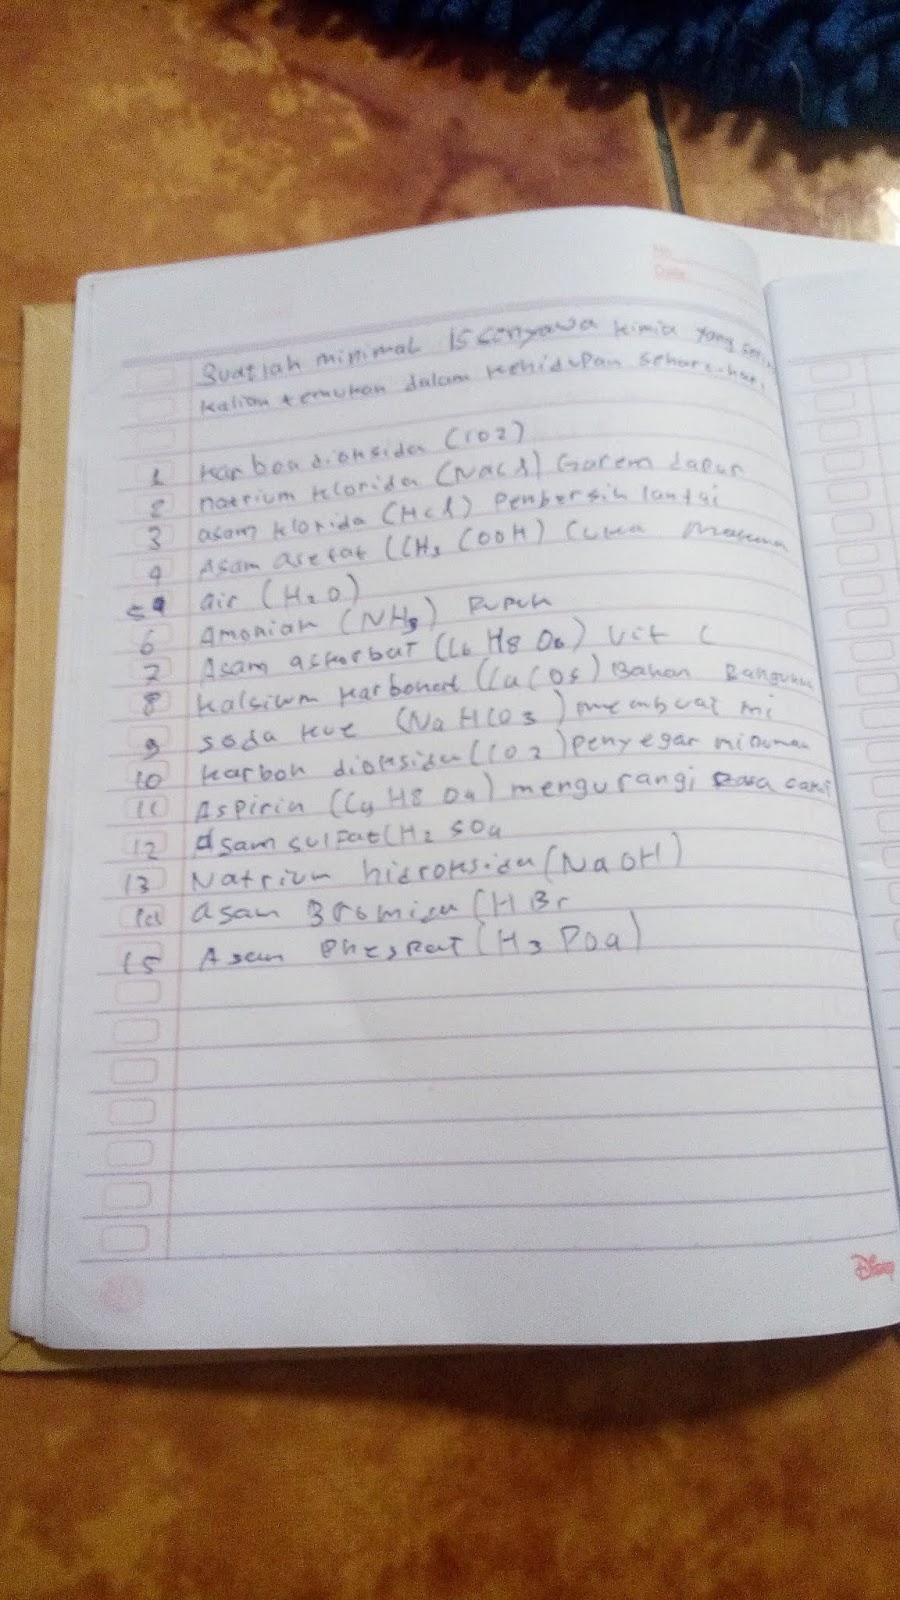 No.
Date:
Buatlah minimal 15 senyawa kimia yang
kalian temukan dalam kehidupan sehari-hari
1 karbon dioksida (CO2)
2 natrium klorida (NaCl) Garam dapur
3 asam klorida (HCl) Pembersih lantai
4 Asam asetat (CH3 COOH) Cuka makanan
5 air (H2O)
6 Amoniak (NH3) Pupuk
7 Asam askorbat (C6 H8 O6) Vit C
8 kalsium karbonat (CaCO3) Bahan Bangunan
9 soda kue (NaHCO3) membuat mi
10 karbon dioksida (CO2) penyegar minuman
11 Aspirin (C9 H8 O4) mengurangi rasa sakit
12 Asam sulfat (H2 SO4
13 Natrium hidroksida (NaOH)
14 asam Bromida (HBr
15 Asam Phospat (H3 PO4)
Disney